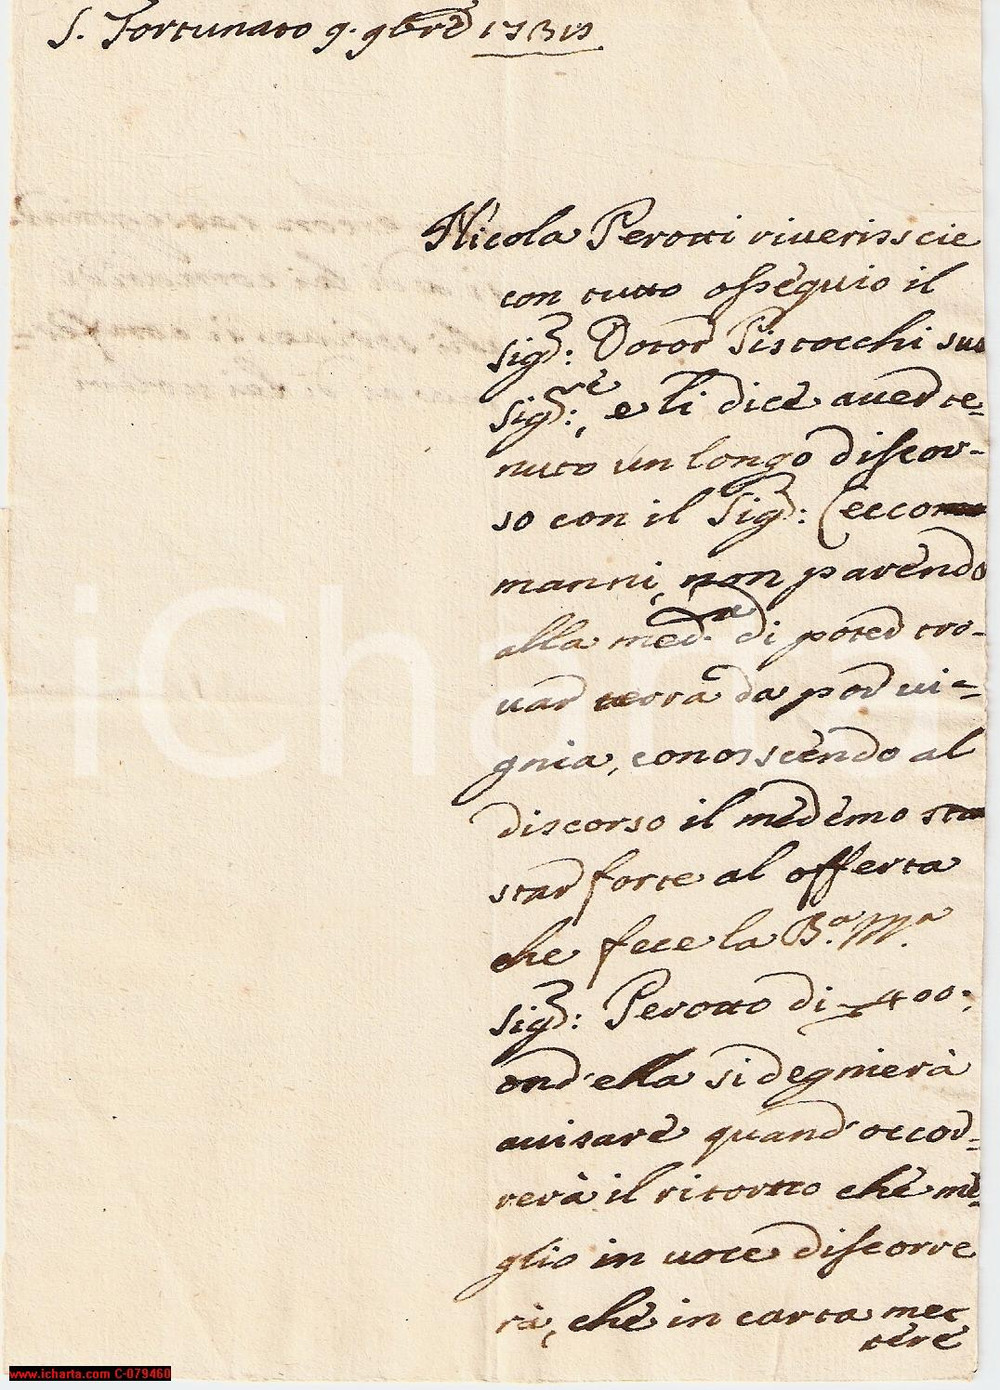 S. Fortunato 9. 9bre 173
Nicola Perotti riverisscie
con tutto ossequio il
Sigr: Dotor Pistocchi suo
Sigr:re, e li dice aver te-
nuto un longo discor-
so con il Sigr: Cecco
manni, non parendo
alla med.a di poter tro-
var terra da por vi-
gnia, conosscendo al
discorso il medemo sta
star forte al offerta
che fece la B.a M.a
Sigr: Perotto di 400:
ond'ella si degnierà
avisare quand'occor-
rerà il ritorno che me-
glio in voce discorre
rà, che in carta met
tere
iCharta
www.icharta.com C-079460